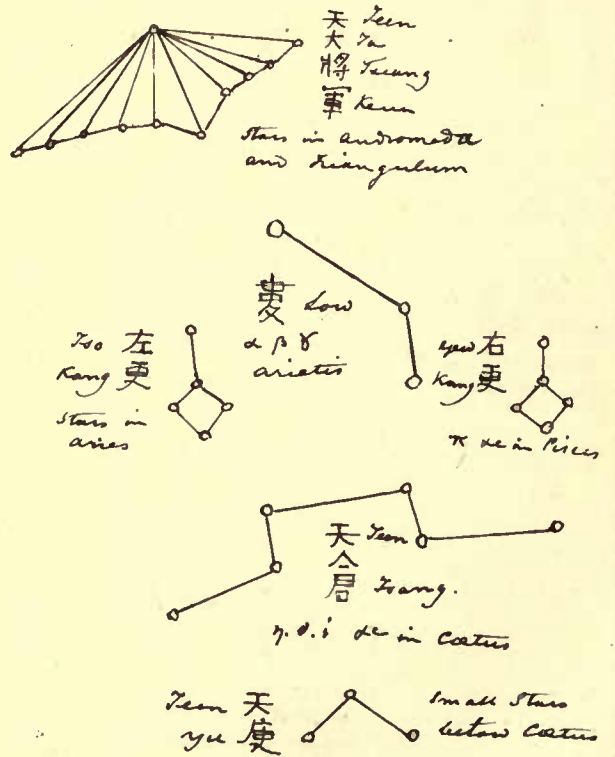 天 Teen
大 Ta
將 Tseang
軍 Keun
Stars in Andromeda
and Triangulum
婁 Low
α β γ
arietis
Tso 左
Kang 更
Stars in
aries
yew 右
Kang 更
π &c in Pisces
天 Teen
倉 Tsang.
η. θ. ι &c in Cœtus
Teen 天
yu 庾
Small Stars
below Cœtus